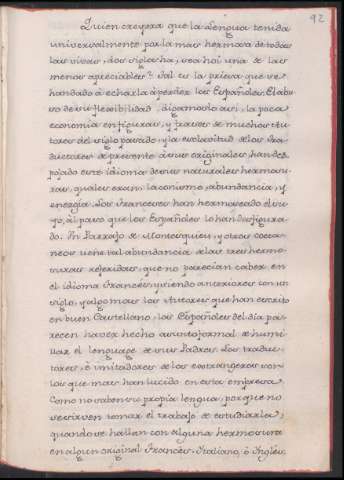 92
Quien creyera que la Lengua tenida
universalmente por la mas hermosa de todas
las vivas, dos siglos ha, sea hoi una de las
menos apreciables? Tal es la priesa que se
han dado á echarla á perder los Españoles. El abu
so de su flexibilidad, digamoslo asi, la poca
economia en figuras, y frases de muchos Au-
tores del siglo pasado, y la esclavitud de los Tra-
ductores de presente á sus originales, han des
pojado este idioma de sus naturales hermosu-
ras, quales eran laconismo, abundancia, y
energia. Los Franceses han hermoseado el su-
yo, al paso que los Españoles lo han desfigura-
do. Un Parrafo de Montesquieu, y otros coeta-
neos tiene tal abundancia de las tres hermo-
suras referidas, que no parecian caber en
el idioma Frances; y siendo anteriores con un
siglo, y algo mas los Autores que han escrito
en buen Castellano, los Españoles del dia pa-
recen haver hecho asunto formal de humi-
llar el lenguage de sus Padres. Los traduc-
tores, é imitadores de los estrangeros son
los que mas han lucido en esta empresa.
Como no saben su propia lengua, porque no
se sirven tomar el trabajo de estudiarla;
quando se hallan con alguna hermosura
en algun original Frances, Italiano, ó Ingles,